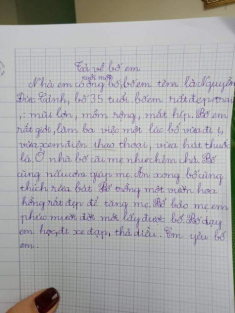 Tả về bố em
người mà
Nhà em có ông bố, bố em tên là Nguyễn
Đức Cảnh, bố 35 tuổi bố em rất đẹp trai
,: mũi lớn, mồm rộng, mắt híp. Bố em
rất giỏi, làm ba việc một lúc bố vừa đi ị,
vừa xem điện thoại, vừa hát thuốc
lá. Ở nhà bố cãi mẹ như chém chả. Bố
cũng nấu cơm giúp mẹ. Ăn xong bố cũng
thích rửa bát. Bố trồng một vườn hoa
hồng rất đẹp để tặng mẹ. Bố bảo mẹ em
phúc mười đời mới lấy được bố. Bố dạy
em học, đi xe đạp, thả diều. Em yêu bố
em.